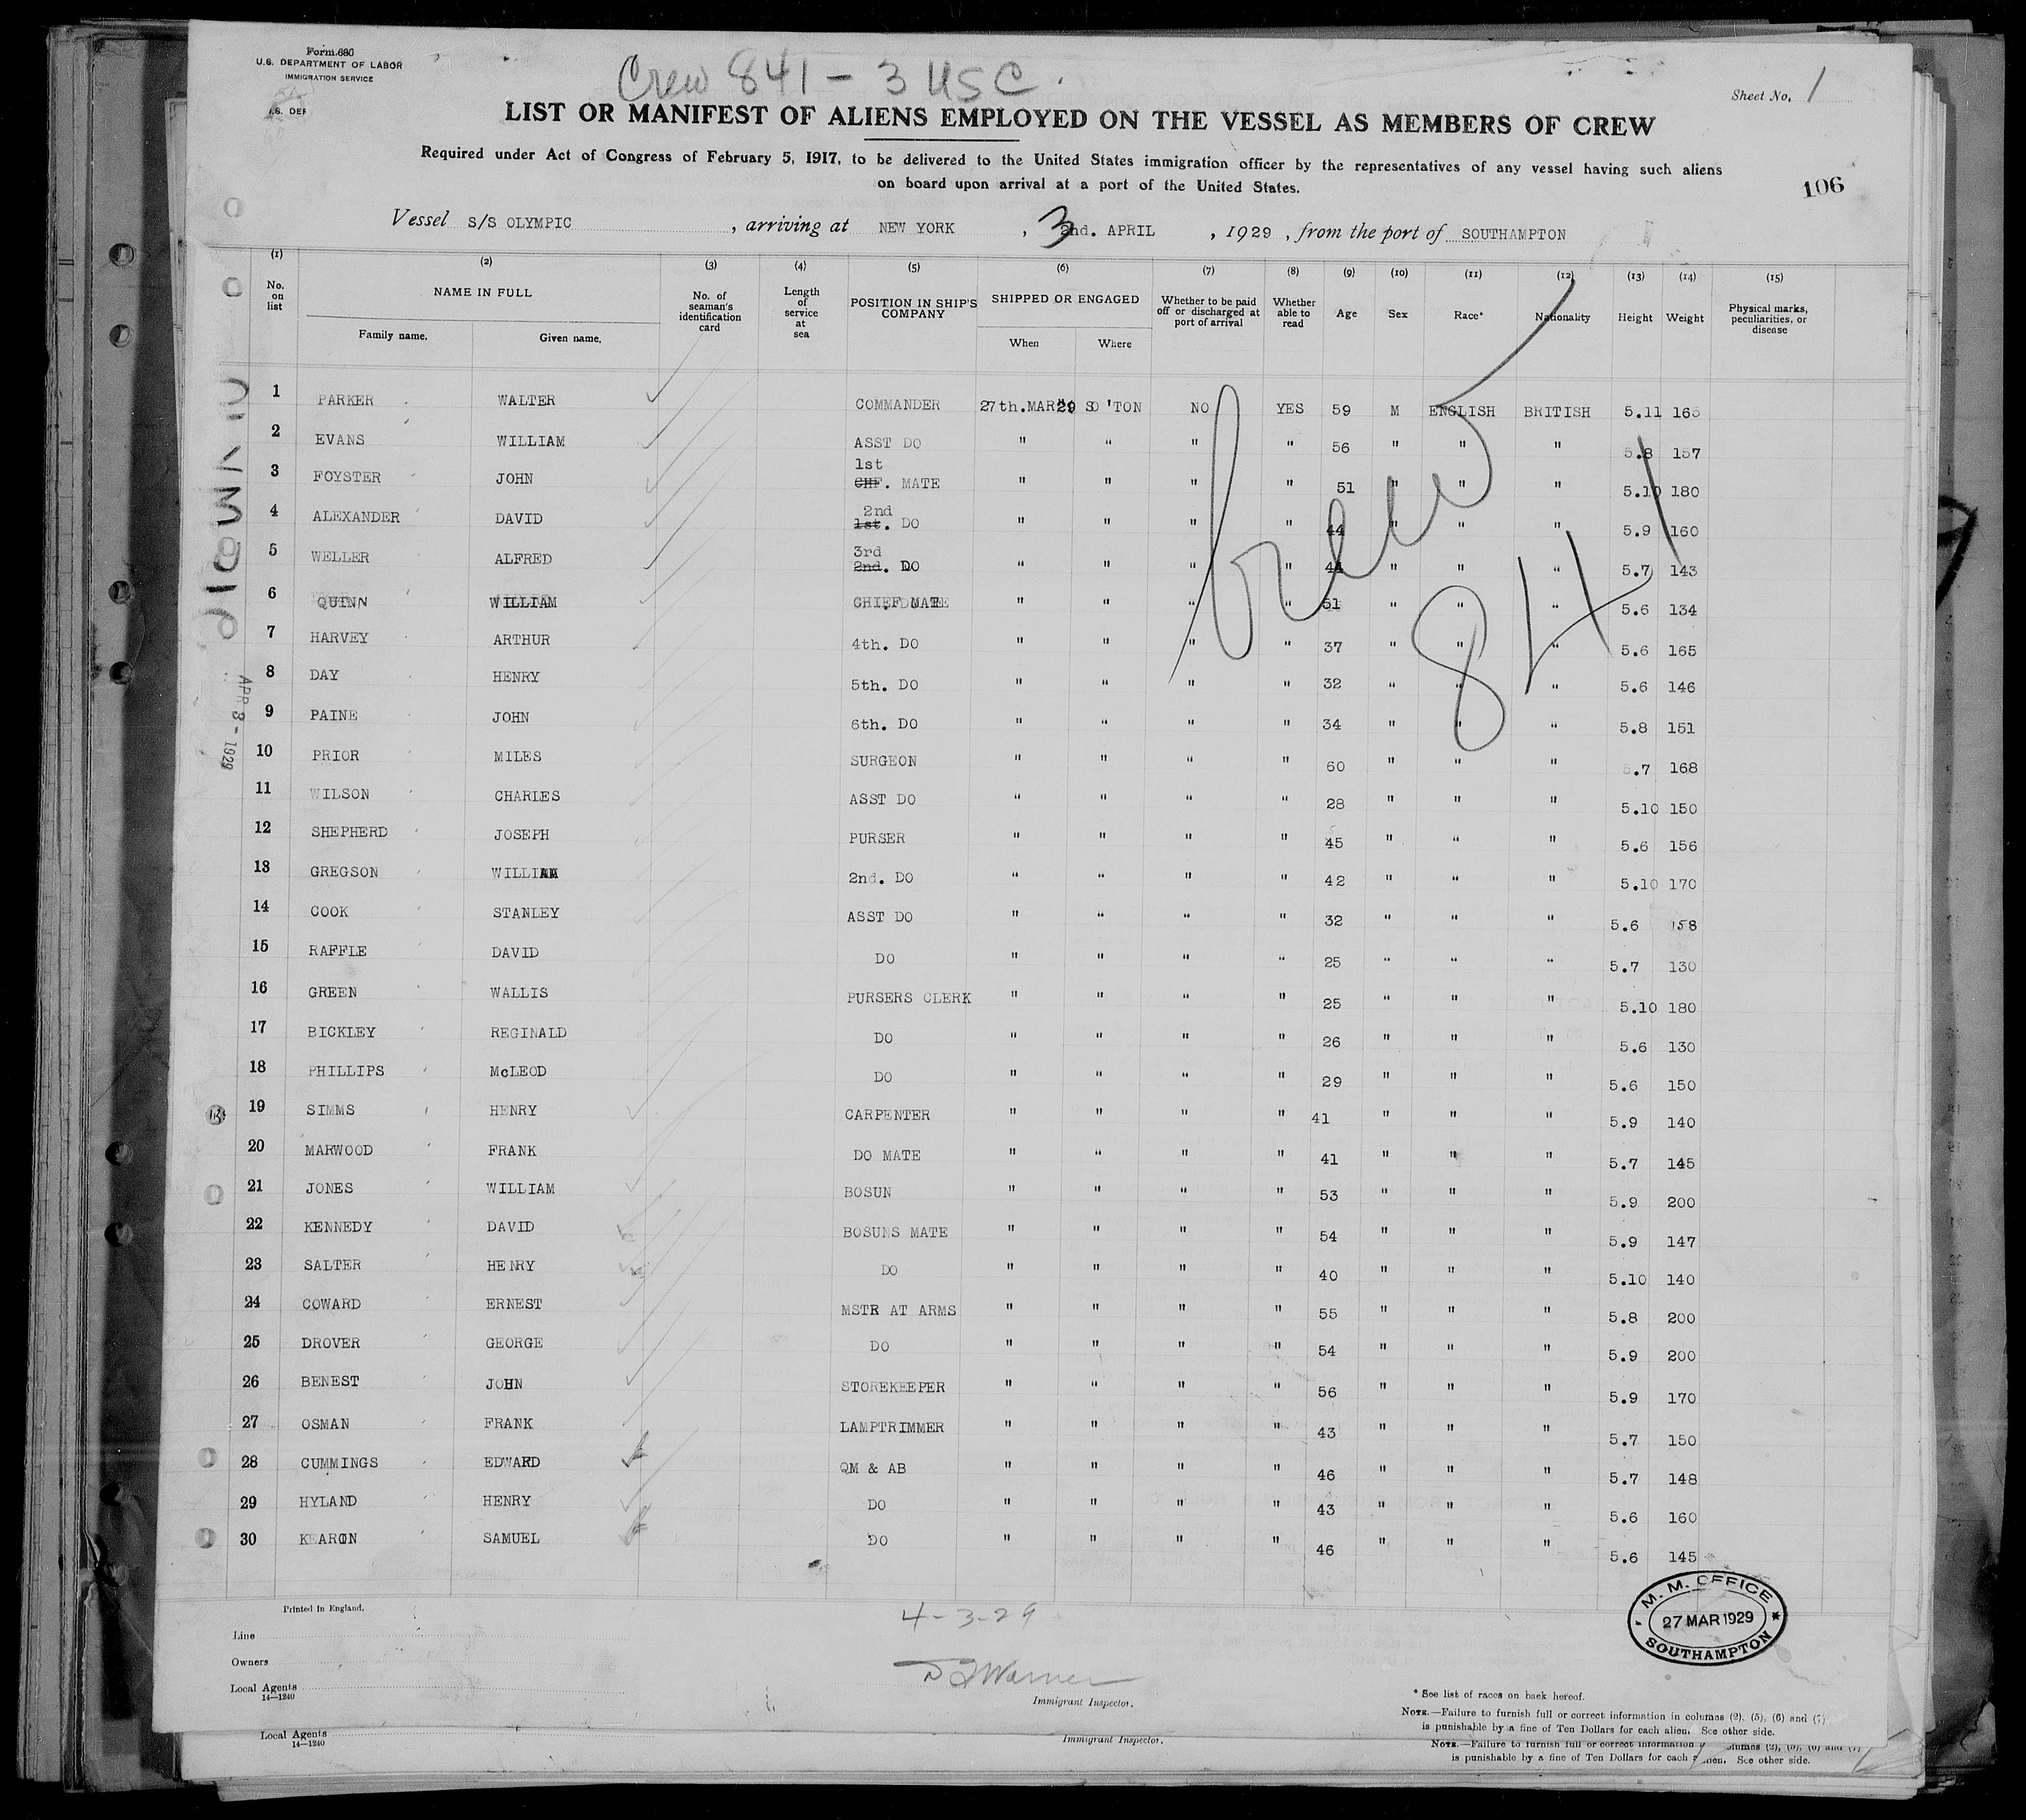 Form 680
U.S. DEPARTMENT OF LABOR
IMMIGRATION SERVICE
Crew 841 - 3 USC.
Sheet No. 1
LIST OR MANIFEST OF ALIENS EMPLOYED ON THE VESSEL AS MEMBERS OF CREW
Required under Act of Congress of February 5, 1917, to be delivered to the United States immigration officer by the representatives of any vessel having such aliens
on board upon arrival at a port of the United States.
106
Vessel S/S OLYMPIC, arriving at NEW YORK, 3 2nd. APRIL, 1929, from the port of SOUTHAMPTON
(1) (2) (3) (4) (5) (6) (7) (8) (9) (10) (11) (12) (13) (14) (15)
No. on list NAME IN FULL Family name. Given name. No. of seaman's identification card Length of service at sea POSITION IN SHIP'S COMPANY SHIPPED OR ENGAGED When Where Whether to be paid off or discharged at port of arrival Whether able to read Age Sex Race* Nationality Height Weight Physical marks, peculiarities, or disease
1 PARKER WALTER COMMANDER 27th.MAR 29 SO'TON NO YES 59 M ENGLISH BRITISH 5.11 165
2 EVANS WILLIAM ASST DO " " " " 56 " " " 5.8 157
3 FOYSTER JOHN 1st CHF. MATE " " " " 51 " " " 5.10 180
4 ALEXANDER DAVID 2nd 1st. DO " " " " 44 " " " 5.9 160
5 WELLER ALFRED 3rd 2nd. DO " " " " 44 " " " 5.7 143
6 QUINN WILLIAM CHIEF MATE " " " " 51 " " " 5.6 134
7 HARVEY ARTHUR 4th. DO " " " " 37 " " " 5.6 165
8 DAY HENRY 5th. DO " " " " 32 " " " 5.6 146
9 PAINE JOHN 6th. DO " " " " 34 " " " 5.8 151
10 PRIOR MILES SURGEON " " " " 60 " " " 5.7 168
11 WILSON CHARLES ASST DO " " " " 28 " " " 5.10 150
12 SHEPHERD JOSEPH PURSER " " " " 45 " " " 5.6 156
13 GREGSON WILLIAM 2nd. DO " " " " 42 " " " 5.10 170
14 COOK STANLEY ASST DO " " " " 32 " " " 5.6 158
15 RAFFLE DAVID DO " " " " 25 " " " 5.7 130
16 GREEN WALLIS PURSERS CLERK " " " " 25 " " " 5.10 180
17 BICKLEY REGINALD DO " " " " 26 " " " 5.6 130
18 PHILLIPS McLEOD DO " " " " 29 " " " 5.6 150
19 SIMMS HENRY CARPENTER " " " " 41 " " " 5.9 140
20 MARWOOD FRANK DO MATE " " " " 41 " " " 5.7 145
21 JONES WILLIAM BOSUN " " " " 53 " " " 5.9 200
22 KENNEDY DAVID BOSUNS MATE " " " " 54 " " " 5.9 147
23 SALTER HENRY DO " " " " 40 " " " 5.10 140
24 COWARD ERNEST MSTR AT ARMS " " " " 55 " " " 5.8 200
25 DROVER GEORGE DO " " " " 54 " " " 5.9 200
26 BENEST JOHN STOREKEEPER " " " " 56 " " " 5.9 170
27 OSMAN FRANK LAMPTRIMMER " " " " 43 " " " 5.7 150
28 CUMMINGS EDWARD QM & AB " " " " 46 " " " 5.7 148
29 HYLAND HENRY DO " " " " 43 " " " 5.6 160
30 KEARON SAMUEL DO " " " " 46 " " " 5.6 145
Crew
841
APR 3 - 1929
Printed in England.
4-3-29
M. M. OFFICE
27 MAR 1929
SOUTHAMPTON
Line
Owners
Local Agents
14—1240
Warner
Immigrant Inspector.
* See list of races on back hereof.
NOTE.—Failure to furnish full or correct information in columns (2), (5), (6) and (7)
is punishable by a fine of Ten Dollars for each alien. See other side.
Local Agents
14—1240
Immigrant Inspector.
NOTE.—Failure to furnish full or correct information columns (2), (5), (6) and (7)
is punishable by a fine of Ten Dollars for each alien. See other side.